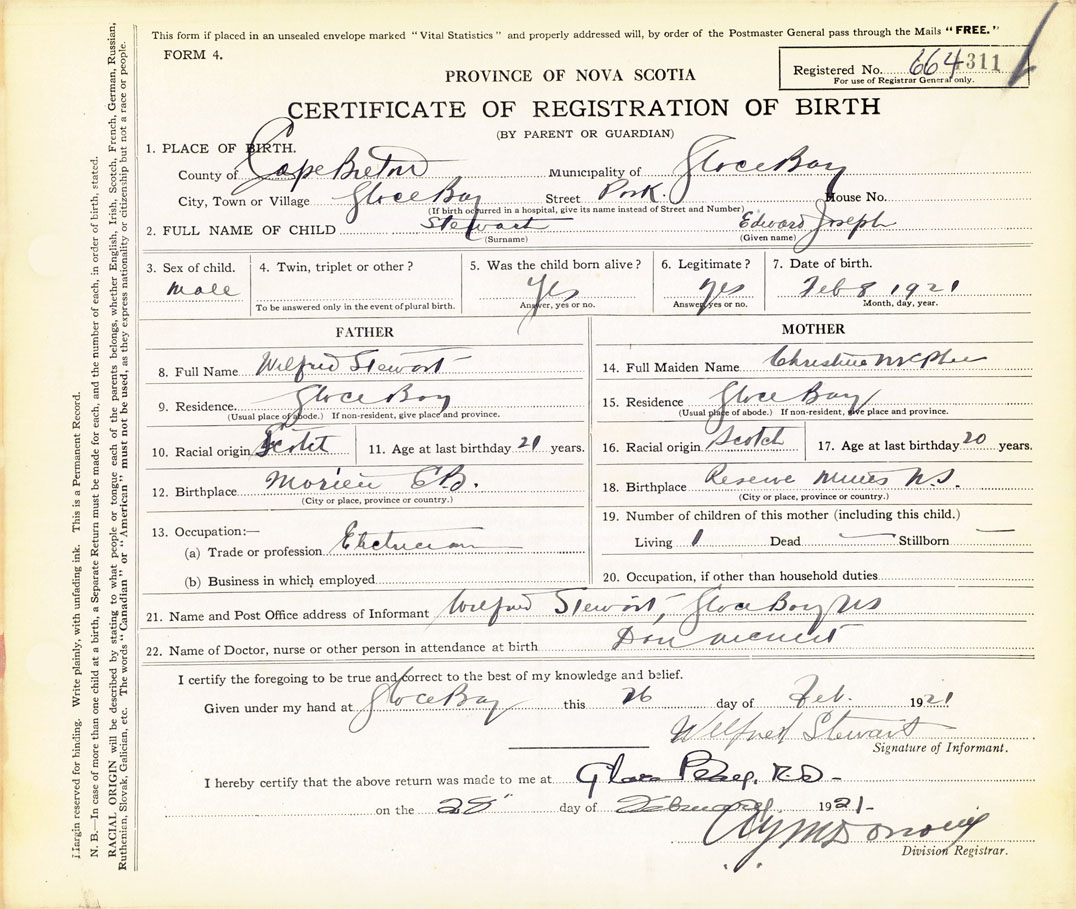 This form if placed in an unsealed envelope marked "Vital Statistics" and properly addressed will, by order of the Postmaster General pass through the Mails "FREE."
FORM 4.
Registered No. 664 4311
For use of Registrar General only.
PROVINCE OF NOVA SCOTIA
CERTIFICATE OF REGISTRATION OF BIRTH
(BY PARENT OR GUARDIAN)
1. PLACE OF BIRTH.
County of Cape Breton Municipality of Glace Bay
City, Town or Village Glace Bay Street Park. House No.
(If birth occurred in a hospital, give its name instead of Street and Number)
2. FULL NAME OF CHILD Stewart Edward Joseph
(Surname) (Given name)
3. Sex of child. 4. Twin, triplet or other? 5. Was the child born alive? 6. Legitimate? 7. Date of birth.
male Yes Yes Feb 8 1921
To be answered only in the event of plural birth. Answer, yes or no. Answer, yes or no. Month, day, year.
FATHER
8. Full Name Wilfred Stewart
9. Residence. Glace Bay
(Usual place of abode.) If non-resident, give place and province.
10. Racial origin 11. Age at last birthday 21 years.
12. Birthplace Morien C.B.
(City or place, province or country.)
13. Occupation:—
(a) Trade or profession Electrician
(b) Business in which employed
MOTHER
14. Full Maiden Name Christine McPhee
15. Residence Glace Bay
(Usual place of abode.) If non-resident, give place and province.
16. Racial origin Scotch 17. Age at last birthday 20 years.
18. Birthplace Reserve Mines N.S.
(City or place, province or country.)
19. Number of children of this mother (including this child.)
Living 1 Dead — Stillborn —
20. Occupation, if other than household duties
21. Name and Post Office address of Informant Wilfred Stewart, Glace Bay NS
22. Name of Doctor, nurse or other person in attendance at birth
I certify the foregoing to be true and correct to the best of my knowledge and belief.
Given under my hand at Glace Bay this 26 day of Feb. 1921
Wilfred Stewart
Signature of Informant.
I hereby certify that the above return was made to me at Glace Bay,
on the 28 day of February 1921-
Division Registrar.
Margin reserved for binding. Write plainly, with unfading ink. This is a Permanent Record.
N. B.—In case of more than one child at a birth, a Separate Return must be made for each, and the number of each, in order of birth, stated.
RACIAL ORIGIN will be described by stating to what people or tongue each of the parents belongs, whether English, Irish, Scotch, French, German, Russian,
Ruthenian, Slovak, Galician, etc. The words "Canadian" or "American" must not be used, as they express nationality or citizenship but not a race or people.